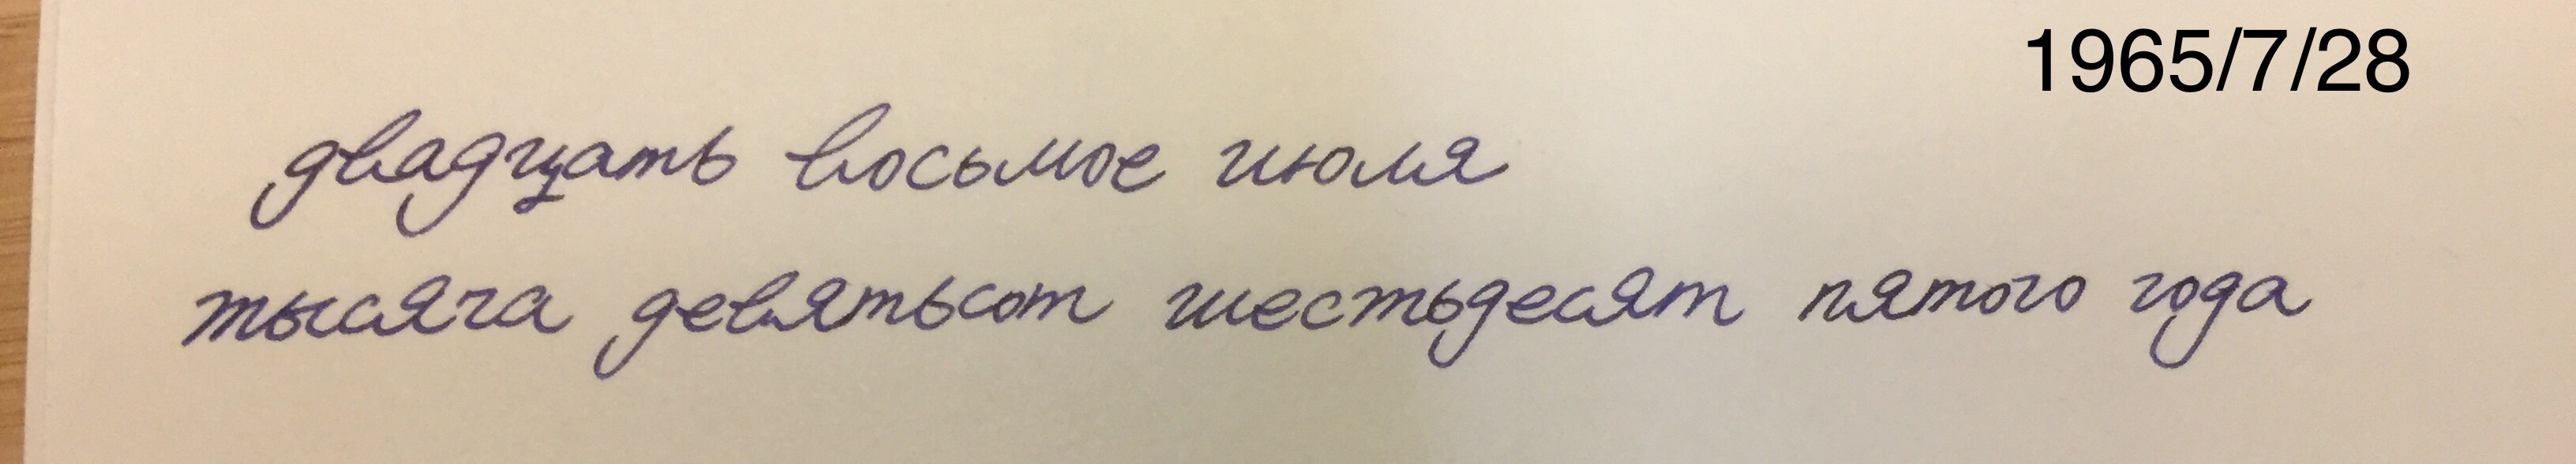 1965/7/28
двадцать восьмое июля
тысяча девятьсот шестьдесят пятого года